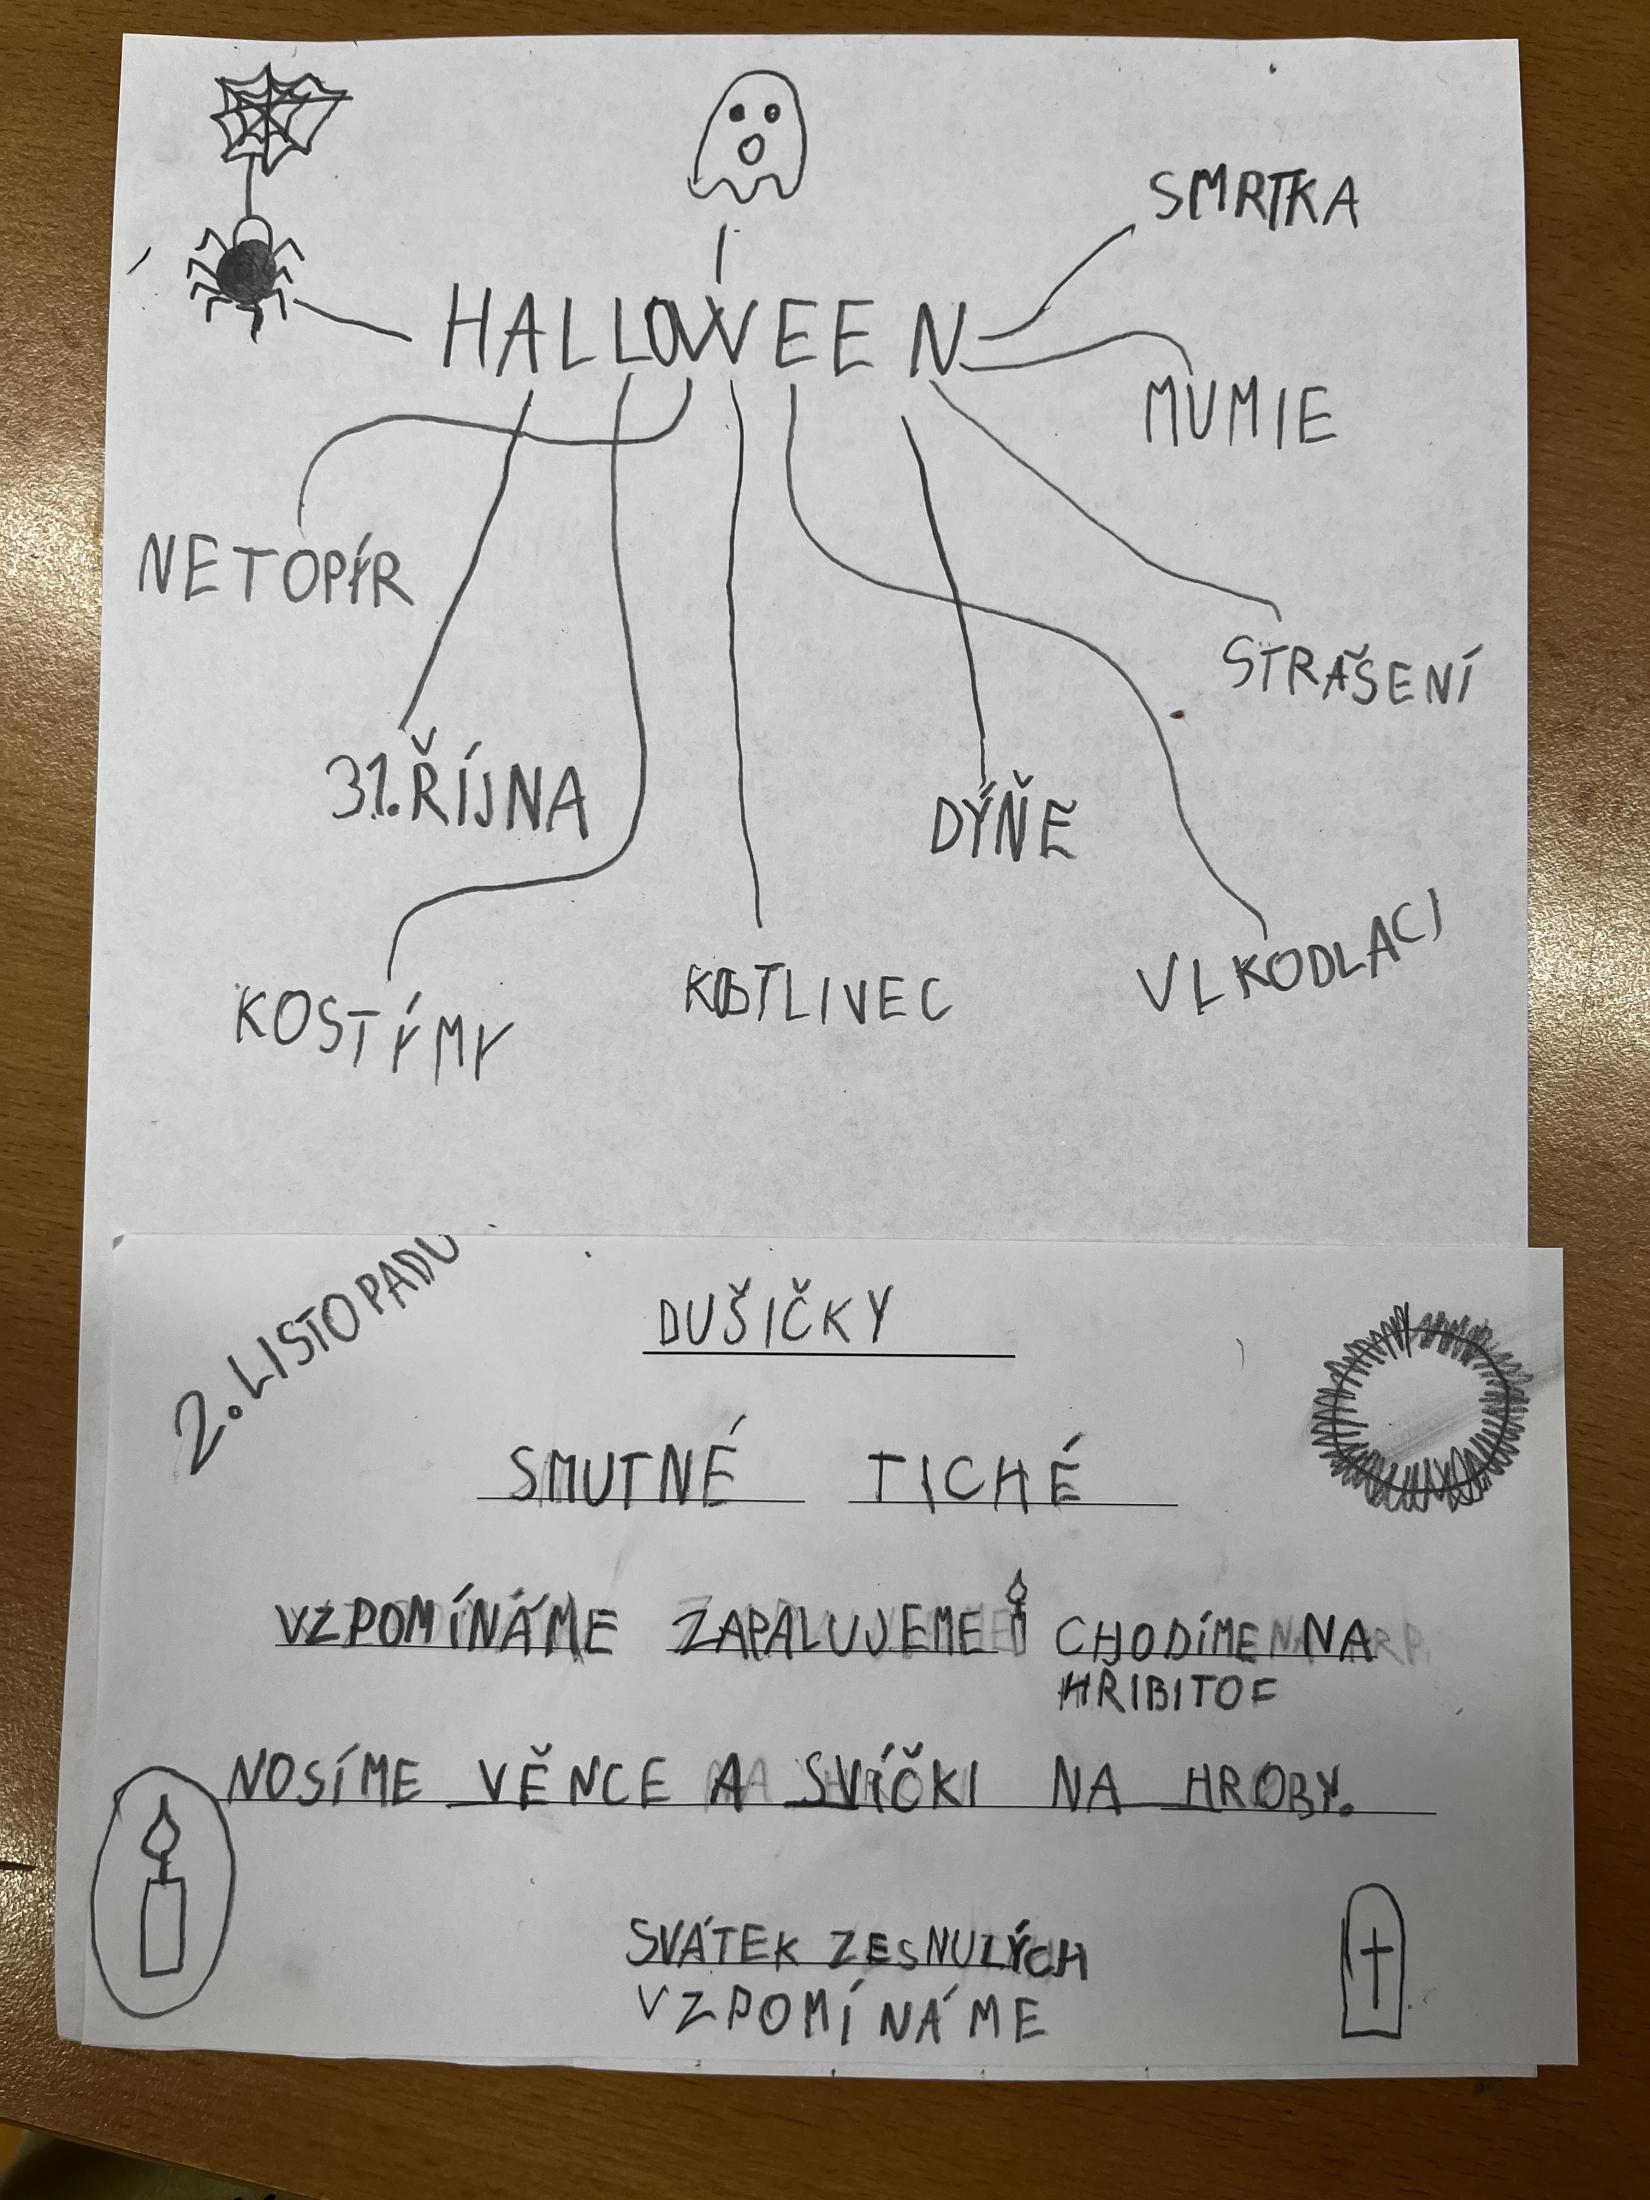 SMRTKA
HALLOWEEN
MUMIE
NETOPÝR
STRAŠENÍ
31. ŘÍJNA
DÝNĚ
KOSTÝMY
KOSTLIVEC
VLKODLACI
2. LISTOPADU
DUŠIČKY
SMUTNÉ TICHÉ
VZPOMÍNÁME ZAPALUJEME CHODÍME NA
HŘIBITOF
NOSÍME VĚNCE A SVÍČKI NA HROBY.
SVÁTEK ZESNULÝCH
VZPOMÍNÁME